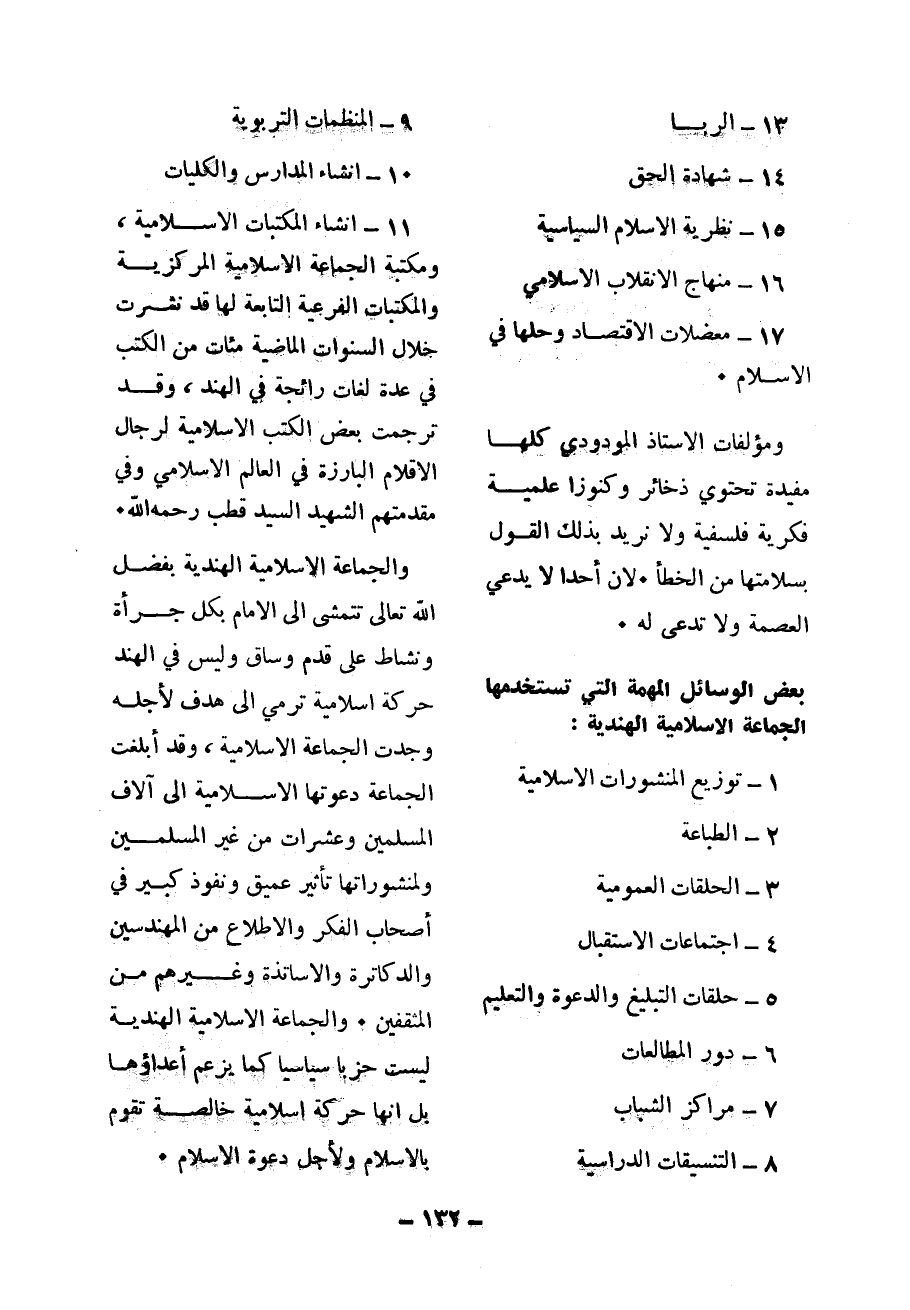 ١٣ – الربا
١٤ – شهادة الحق
١٥ – نظرية الاسلام السياسية
١٦ – منهاج الانقلاب الاسلامي
١٧ – معضلات الاقتصاد وحلها في
الاسلام ٠
ومؤلفات الاستاذ المودودي كلها
مفيدة تحتوي ذخائر وكنوزا علمية
فكرية فلسفية ولا نريد بذلك القول
بسلامتها من الخطأ ٠ لان أحدا لا يدعي
العصمة ولا تدعى له ٠
بعض الوسائل المهمة التي تستخدمها
الجماعة الاسلامية الهندية :
١ – توزيع المنشورات الاسلامية
٢ – الطباعة
٣ – الحلقات العمومية
٤ – اجتماعات الاستقبال
٥ – حلقات التبليغ والدعوة والتعليم
٦ – دور المطالعات
٧ – مراكز الشباب
٨ – التنسيقات الدراسية
٩ – المنظمات التربوية
١٠ – انشاء المدارس والكليات
١١ – انشاء المكتبات الاسلامية ،
ومكتبة الجماعة الاسلامية المركزية
والمكتبات الفرعية التابعة لها قد نشرت
خلال السنوات الماضية مئات من الكتب
في عدة لغات رائجة في الهند ، وقد
ترجمت بعض الكتب الاسلامية لرجال
الاقلام البارزة في العالم الاسلامي وفي
مقدمتهم الشهيد السيد قطب رحمه الله ٠
والجماعة الاسلامية الهندية بفضل
الله تعالى تتمشى الى الامام بكل جرأة
ونشاط على قدم وساق وليس في الهند
حركة اسلامية ترمي الى هدف لأجله
وجدت الجماعة الاسلامية ، وقد أبلغت
الجماعة دعوتها الاسلامية الى آلاف
المسلمين وعشرات من غير المسلمين
ولمنشوراتها تأثير عميق ونفوذ كبير في
أصحاب الفكر والاطلاع من المهندسين
والدكاترة والاساتذة وغيرهم من
المثقفين ٠ والجماعة الاسلامية الهندية
ليست حزبا سياسيا كما يزعم أعداؤها
بل انها حركة اسلامية خالصة تقوم
بالاسلام ولأجل دعوة الاسلام ٠
– ١٣٢ –